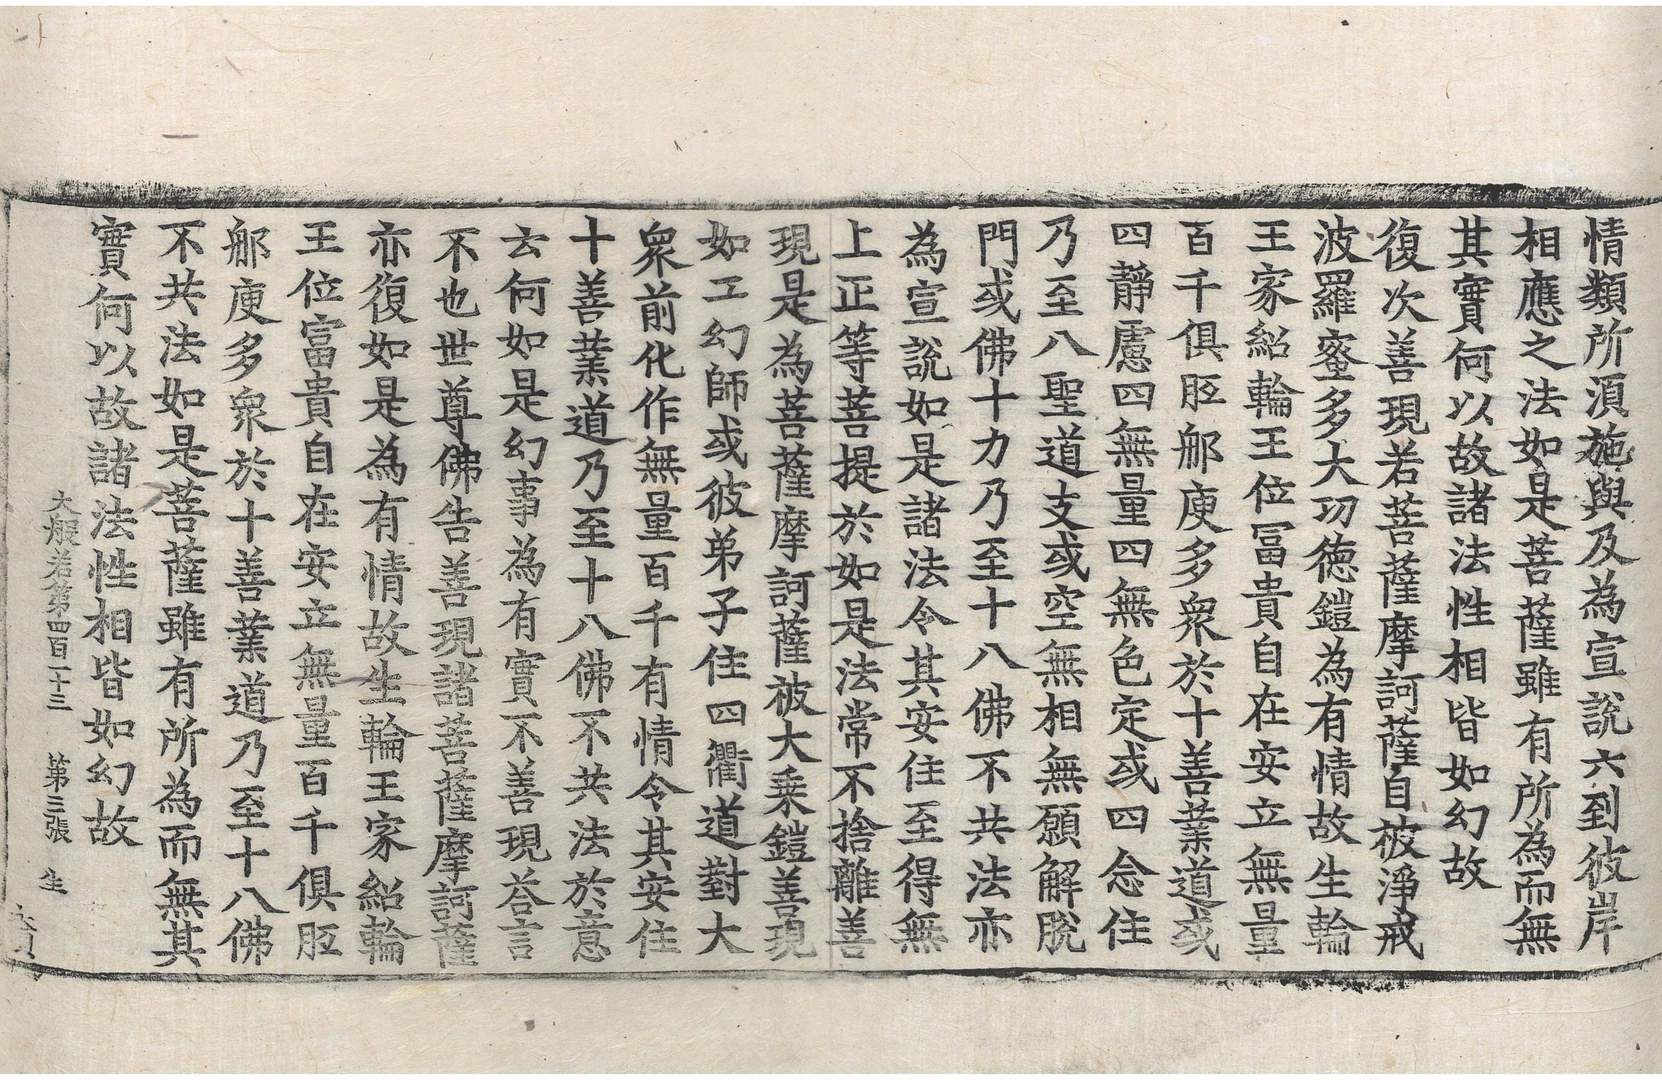 情類所須施與及為宣說六到彼岸
相應之法如是菩薩雖有所為而無
其實何以故諸法性相皆如幻故
復次善現若菩薩摩訶薩自被淨戒
波羅蜜多大功德鎧為有情故生輪
王家紹輪王位富貴自在安立無量
百千俱胝那庾多眾於十善業道或
四靜慮四無量四無色定或四念住
乃至八聖道支或空無相無願解脫
門或佛十力乃至十八佛不共法亦
為宣說如是諸法令其安住至得無
上正等菩提於如是法常不捨離善
現是為菩薩摩訶薩被大乘鎧善現
如工幻師或彼弟子住四衢道對大
眾前化作無量百千有情令其安住
十善業道乃至十八佛不共法於意
云何如是幻事為有實不善現答言
不也世尊佛告善現諸菩薩摩訶薩
亦復如是為有情故生輪王家紹輪
王位富貴自在安立無量百千俱胝
那庾多眾於十善業道乃至十八佛
不共法如是菩薩雖有所為而無其
實何以故諸法性相皆如幻故
大般若第四百一十三 第三張 生